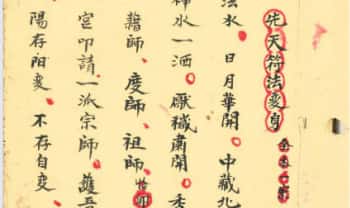 先天符法变身
法水 日月華開 中藏北
神水一洒 厭穢肅開
籍師 度師 祖師
宫叩請一派宗師 護吾
陽存阳变 不存自变